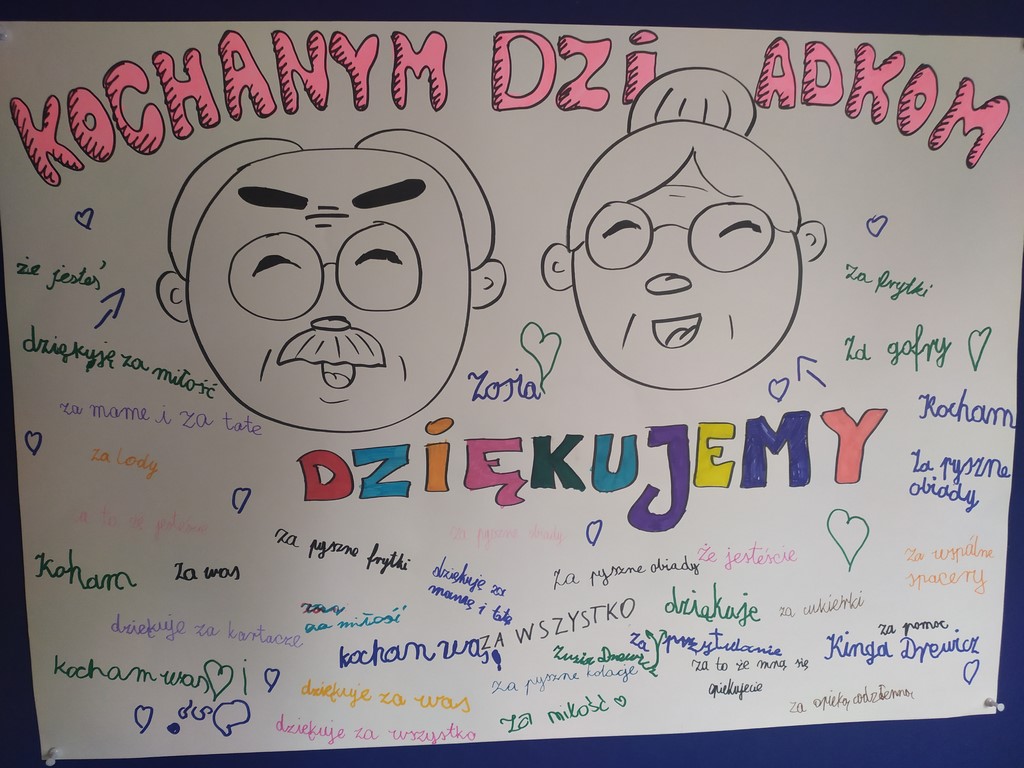 KOCHANYM DZIADKOM
że jesteś
za frytki
dziękuję za miłość
Za gofry
Zosia
za mame i za tate
Kocham
DZIĘKUJEMY
za lody
Za pyszne
obiady
za pyszne obiady
za pyszne frytki
Za pyszne obiady
że jesteście
Za wspólne
spacery
Koham
Za was
dziękuje za
mamę i tatę
za miłość
ZA WSZYSTKO
dziękuje
za cukierki
dziękuje za kartacze
kochan was!
za przytulanie
za pomoc
Kinga Drewicz
Zuzia Drewicz
kocham was i
za pyszne kolacje
za to że mną się
opiekujecie
dziękuje za was
Za miłość
dziękuje za wszystko
za opiekę